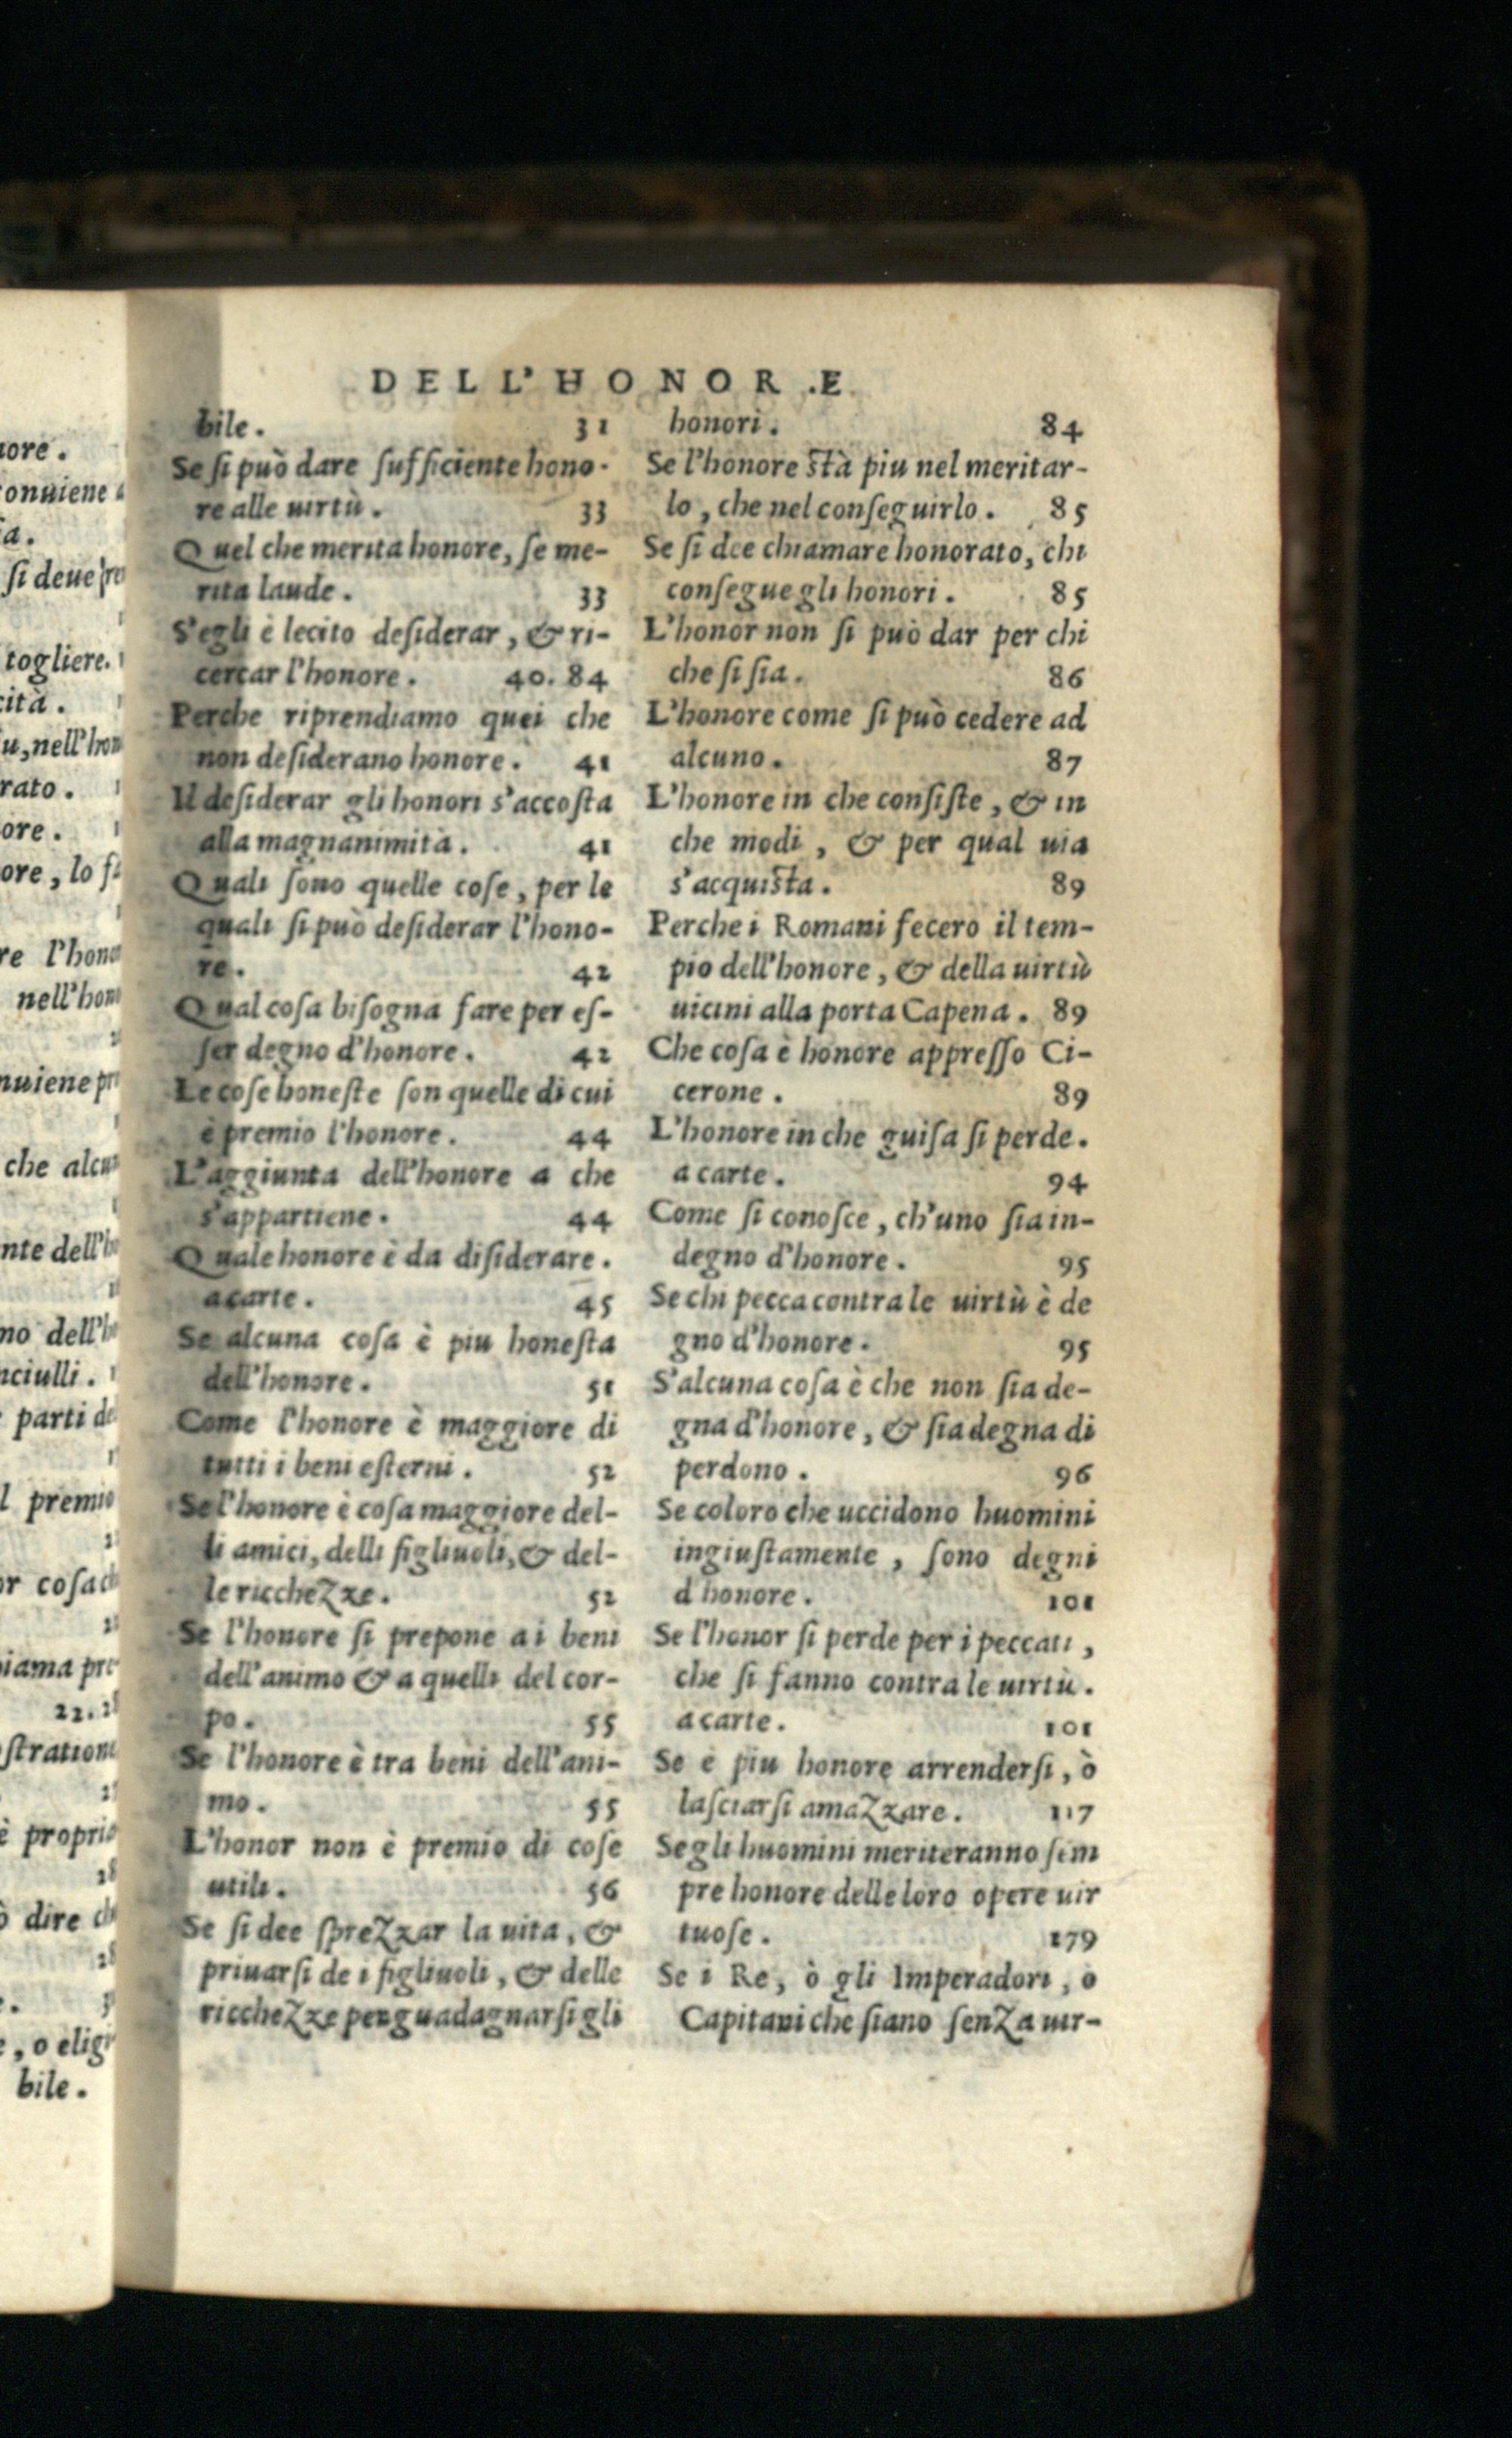 DELL'HONOR.E
bile. 31
Se ſi può dare ſufficiente hono-
re alle uirtù. 33
Quel che merita honore, ſe me-
rita laude. 33
S'egli è lecito deſiderar, & ri-
cercar l'honore. 40. 84
Perche riprendiamo quei che
non deſiderano honore. 41
Il deſiderar gli honori s'accoſta
alla magnanimità. 41
Quali ſono quelle coſe, per le
quali ſi può deſiderar l'hono-
re. 42
Qual coſa biſogna fare per eſ-
ſer degno d'honore. 42
Le coſe honeſte ſon quelle di cui
è premio l'honore. 44
L'aggiunta dell'honore a che
s'appartiene. 44
Quale honore è da diſiderare.
a carte. 45
Se alcuna coſa è piu honeſta
dell'honore. 51
Come l'honore è maggiore di
tutti i beni eſterni. 52
Se l'honore è coſa maggiore del-
li amici, delli figliuoli, & del-
le ricchezze. 52
Se l'honore ſi prepone a i beni
dell'animo & a quelli del cor-
po. 55
Se l'honore è tra beni dell'ani-
mo. 55
L'honor non è premio di coſe
utili. 56
Se ſi dee ſprezzar la uita, &
priuarſi de i figliuoli, & delle
ricchezze per guadagnarſi gli
honori. 84
Se l'honore ſtà piu nel meritar-
lo, che nel conſeguirlo. 85
Se ſi dee chiamare honorato, chi
conſegue gli honori. 85
L'honor non ſi può dar per chi
che ſi ſia. 86
L'honore come ſi può cedere ad
alcuno. 87
L'honore in che conſiſte, & in
che modi, & per qual uia
s'acquiſta. 89
Perche i Romani fecero il tem-
pio dell'honore, & della uirtù
uicini alla porta Capena. 89
Che coſa è honore appreſſo Ci-
cerone. 89
L'honore in che guiſa ſi perde.
a carte. 94
Come ſi conoſce, ch'uno ſia in-
degno d'honore. 95
Se chi pecca contra le uirtù è de
gno d'honore. 95
S'alcuna coſa è che non ſia de-
gna d'honore, & ſia degna di
perdono. 96
Se coloro che uccidono huomini
ingiuſtamente, ſono degni
d honore. 101
Se l'honor ſi perde per i peccati,
che ſi fanno contra le uirtù.
a carte. 101
Se è piu honore arrenderſi, ò
laſciarſi amazzare. 117
Se gli huomini meriteranno ſem
pre honore delle loro opere uir
tuoſe. 179
Se i Re, ò gli Imperadori, o
Capitani che ſiano ſenza uir-